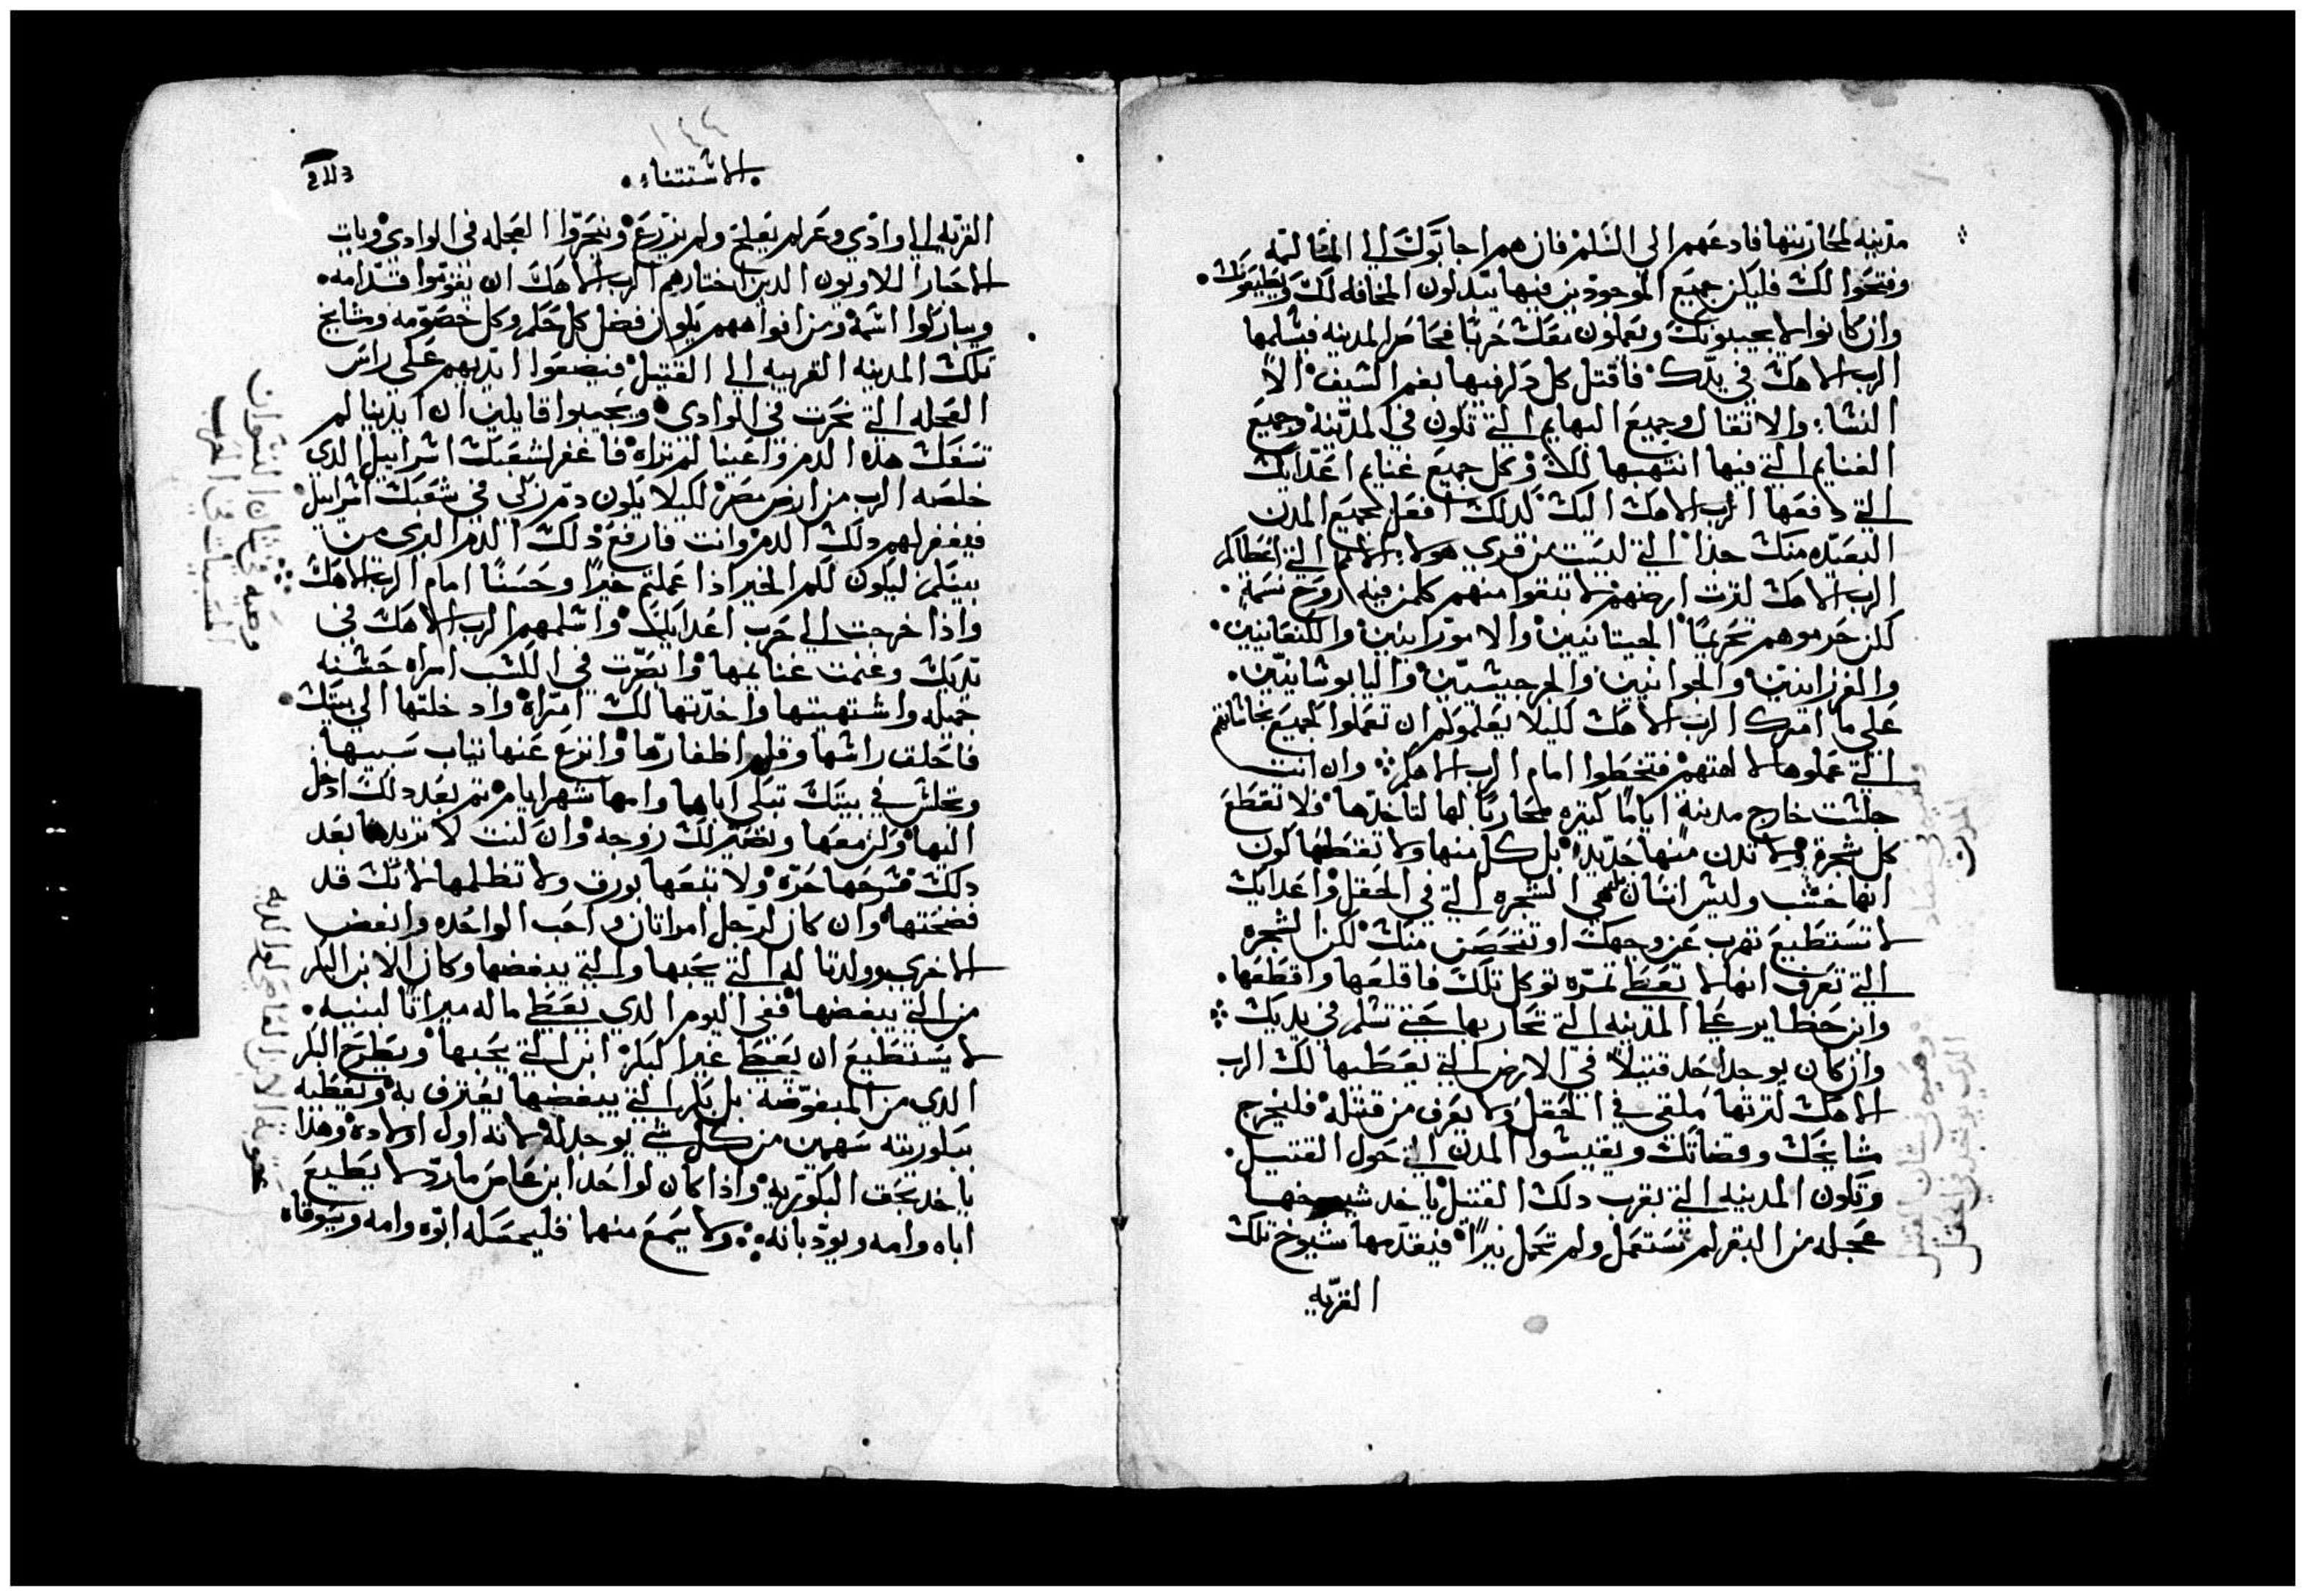 مدينه لمحاربتها فادعهم الي السلم فان هم اجابوك الي المسالمه
وفتحوا لك فليكن جميع الموجودين فيها يبدلون المخافه لك ويطيعونك
وان كانوا لا يجيبونك ويعملون معك حربًا فحاصر المدينه فيسلمها
الرب الاهك في يدك فاقتل كل ذكر فيها بفم السيف الا
النسا والاثقال وجميع البهايم التي تكون في المدينه وجميع
الغنايم التي فيها انتهبها لك وكل جميع غنايم اعدايك
التي دفعها الرب الاهك اليك كدلك افعل بجميع المدن
البعيده منك جدًا التي ليست من قري هولاء الامم التي اعطاكم
الرب الاهك لترث ارضهم لا تبقوا منهم كلمن فيه روح نسمة
لكن حرموهم تحريمًا الحيتانيين والاموراينين والكنعانيين
والفرزانيين والحوانيين والجرجيسيين واليابوسانيين
علي ما امرك الرب الاهك لكيلا يعلموكم ان تعملوا كجميع نجاساتهم
التي عملوها لالهتهم فتخطوا امام الرب الاهكم وان انت
جلست خارج مدينة ايامًا كتيره محاربًا لها لتاخدها فلا تقطع
كل شجرة ولا تدن منها حديدًا بل كل منها ولا تقتطعها كون
انها خشب وليس انسان هي الشجره التي في الحقل واعدايك
لا تستطيع تهرب عن وجهك او تتحصن منك لكن الشجره
التي تعرف انها لا تعطي تمره توكل تلك فاقلعها واقطعها
وابن حظاير علي المدينه التي تحاربها حتي تسلم في يديك
وان كان يوجد احد قتيلاً في الارض التي يعطيها لك الرب
الاهك لترتها ملقي في الحقل ولا يعرف من قتله فليخرج
مشايخك وقضاتك ويقيسوا المدن التي حول القتيل
وتكون المدينه التي بقرب دلك القتيل ياخد شيوخها
عجله من البقر لم تستعمل ولم تحمل نيرًا فيقدمها شيوخ تلك
القريه
الاستتناء
القريه الي وادي وعر لم يفلح ولم يزرع وينحروا العجله في الوادي وياتي
الاحبار اللاويون الدين اختارهم الرب الاهك ان يقوموا قدامه
ويباركوا اسمه ومن افواههم يكون فصل كل حكم وكل خصومه ومشايخ
تلك المدينه القريبه الي القتيل فيضعوا ايديهم علي راس
العجله التي نحرت في الوادي ويجيبوا قايلين ان ايدينا لم
تسفك هدا الدم واعيننا لم تراه فاغفر لشعبك اسراييل الدي
خلصه الرب من ارض مصر لكيلا يكون دم زكي في شعبك اسراييل
فيغفر لهم دلك الدم وانت فارفع دلك الدم الدي من
بينكم ليكون لكم الخير اذا عملتم خيرًا وحسنًا امام الرب الاهك
واذا خرجت الي حرب اعدايك واسلمهم الرب الاهك في
يديك وغنمت غنايمها وابصرت في الكسب امراه حسنه
جميله واشتهيتها واخدتها لك امراة وادخلتها الي بيتك
فاحلق راسها وقلم اظفارها وانزع عنها تياب سبيها
وتجلس في بيتك تبكي اباها وامها شهر ايام تم بعد دلك ادخل
اليها وكن معها وتصير لك زوجه وان كنت لا تريدها بعد
دلك فسرحها حره ولا تبعها بورق ولا تظلمها لانك قد
فضحتها وان كان لرجل امراتان واحب الواحده وابغض
الاخري وولدتا له التي يحبها والتي يبغضها وكان الابن البكر
من التي يبغضها ففي اليوم الدي يعطي ماله ميراتًا لبنيه
لا يستطيع ان يعطي غير البكر ابن التي يحبها ويطرح البكر
الدي من المبغوضه بل بكر التي يبغضها يعترف به ويعطيه
ببكوريته سهمين من كل شي يوجد له لانه اول اولاده وهدا
ياخد بحق البكوريه واذا كان لواحد ابن عاص مارد لا يطيع
اباه وامه ويودبانه ولا يسمع منهما فليمسكه ابوه وامه ويسوقاه
وصيه في شان النسوان
المسبيات في الحرب
عقوبة الابن العاصي لوالديه